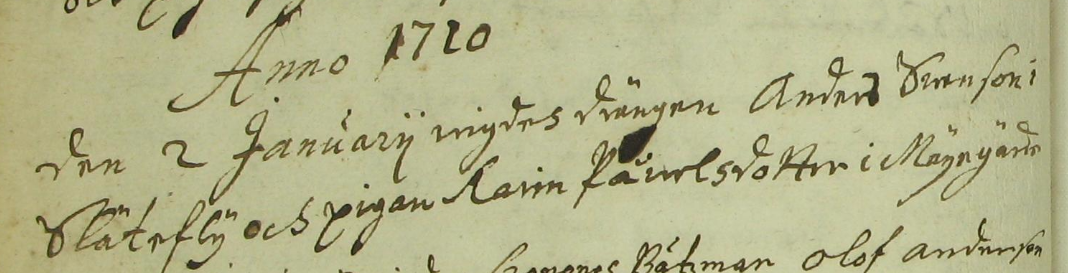 Anno 1710
den 2 Januarij wigdes drängen Anders Swenson i
Slätefly och pigan Karin Påwelsdotter i Mäyegärde
Båtzman Olof anderson